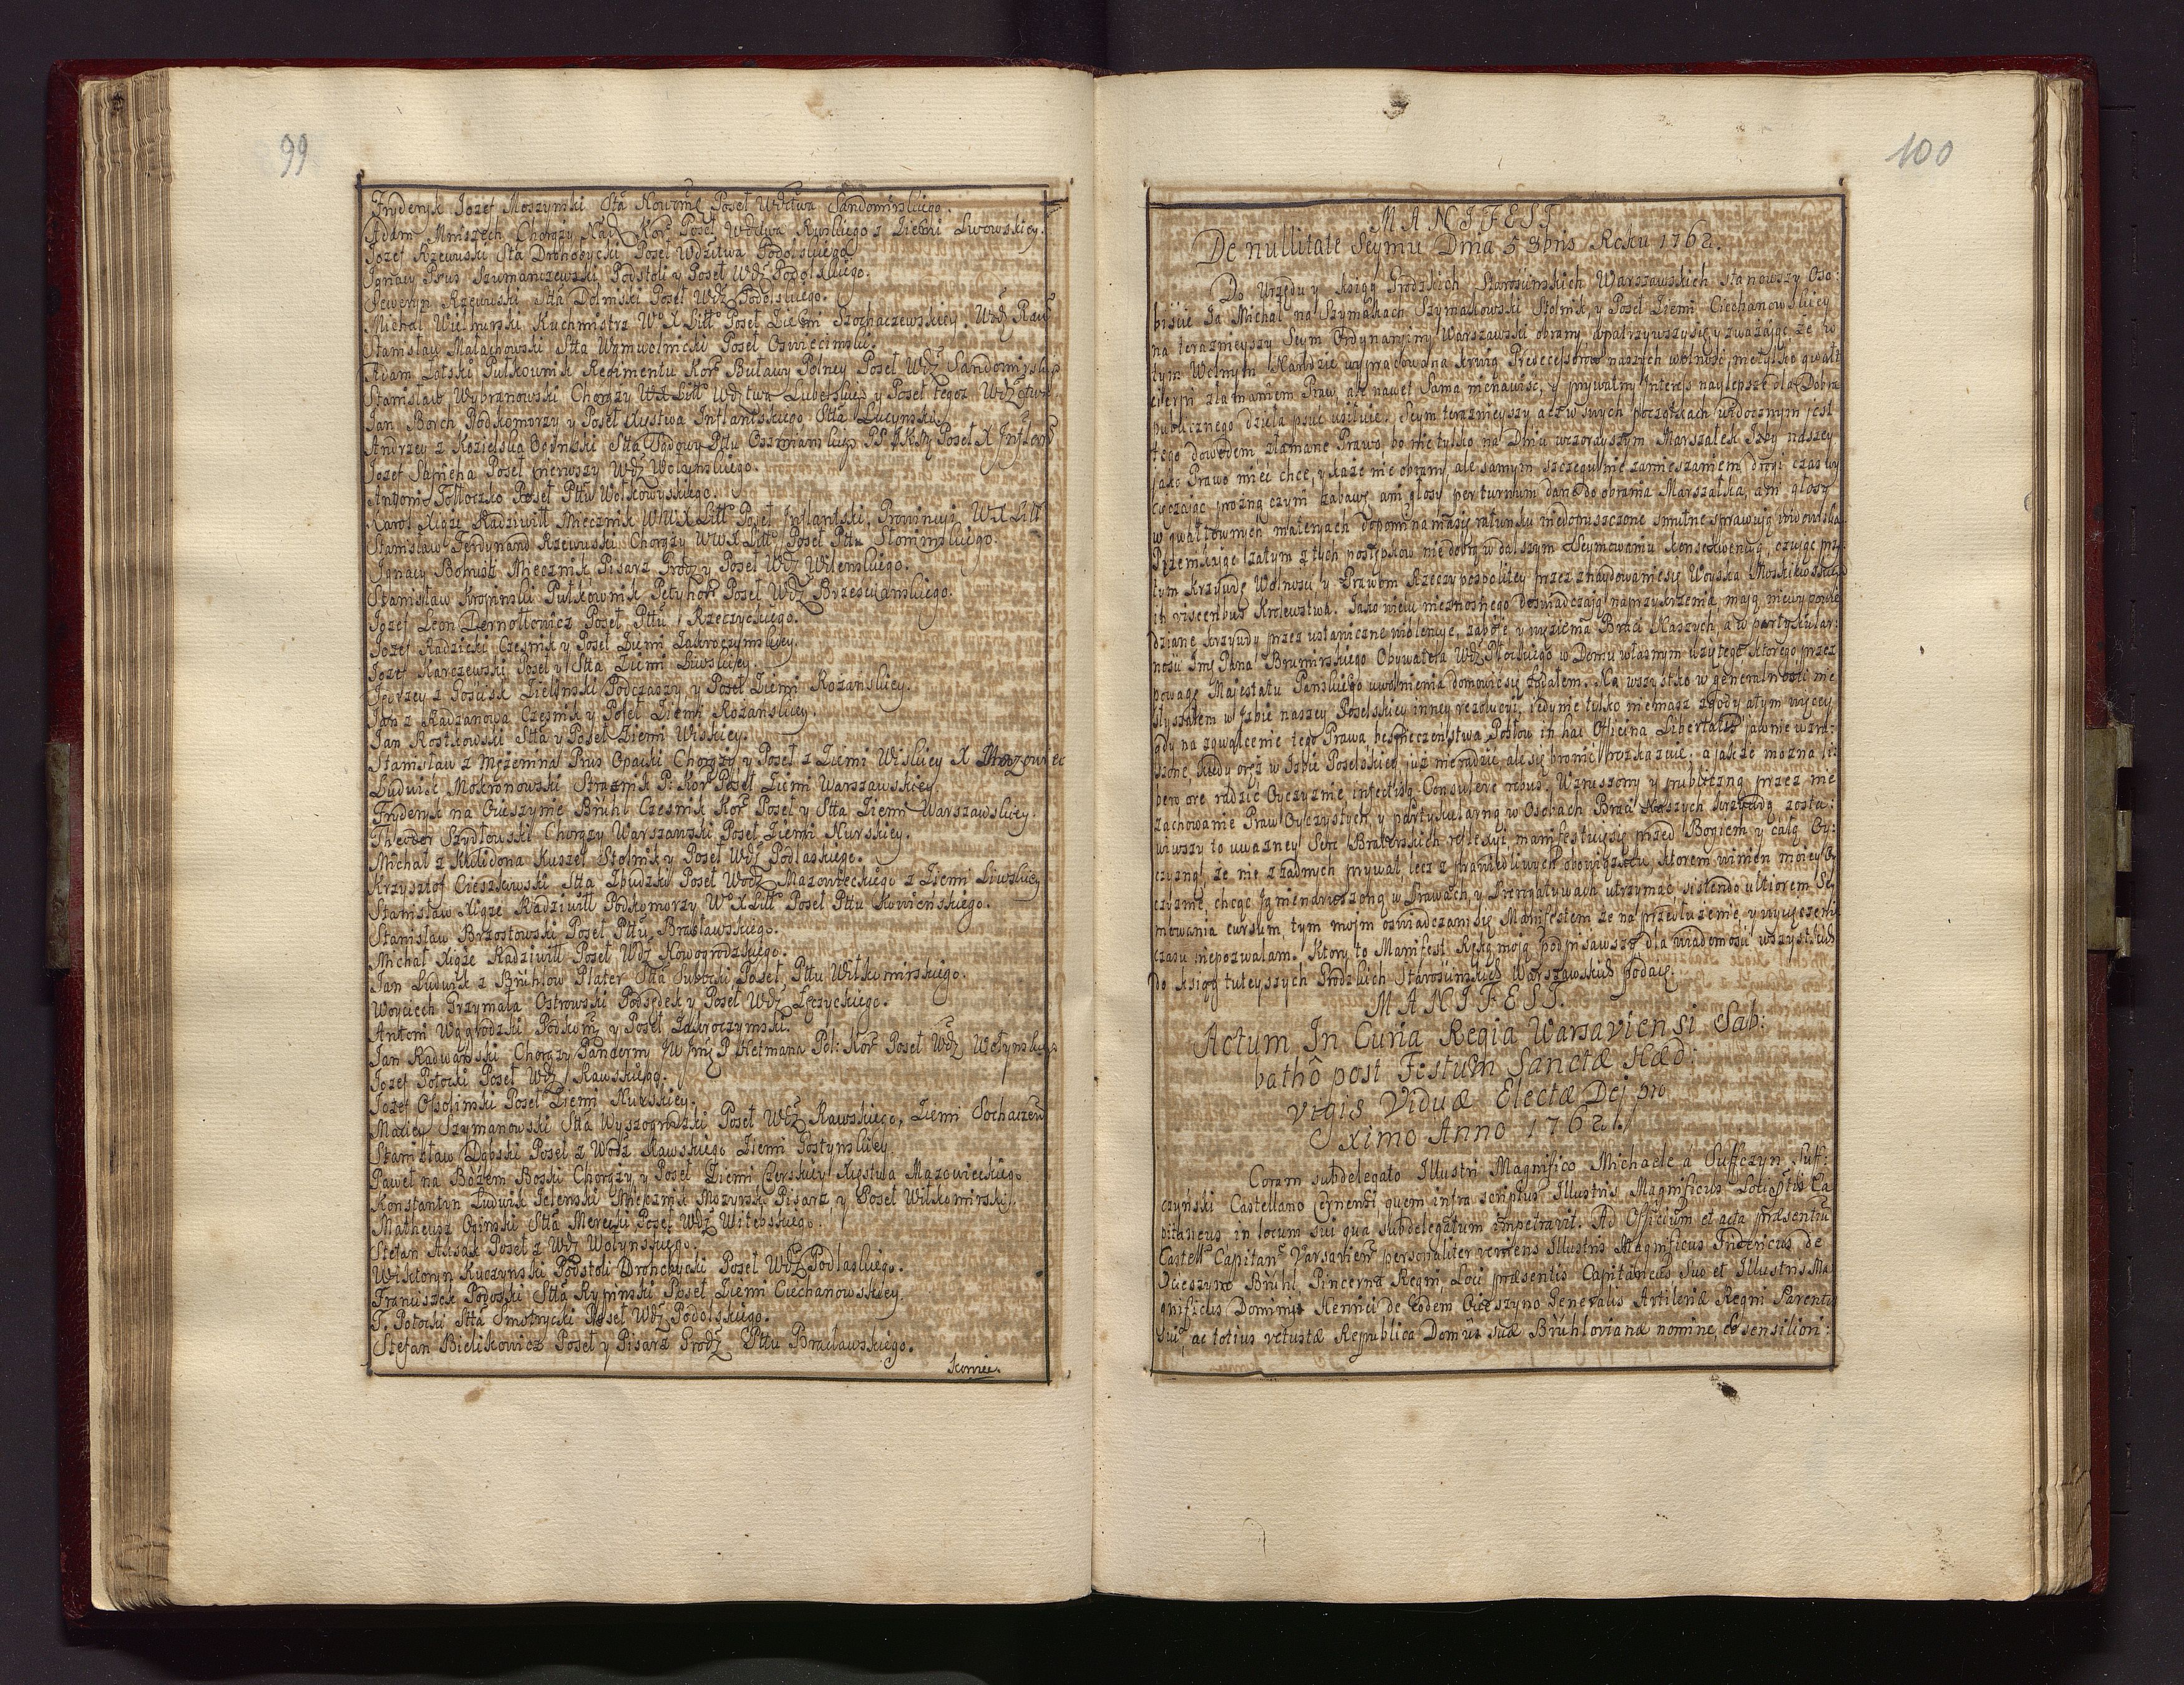 99
Fryderyk Jozef Moszynski Stta Nowomc Poseł Wdztwa Sandomirskiego.
Adam Mniszech Chorąży Nad Kor Poseł Wdztwa Ruskiego z Ziemi Lwowskiey.
Jozef Rzewuski Sta Drohobycki Poseł Wdztwa Podolskiego
Ignacy Prus Szumanczewski Podstoli y Poseł Wdz Podolskiego.
Seweryn Rzewuski Stta Dolinski Poseł Wdz Podolskiego.
Michał Wielhurski Kuchmistrz W° X Litt° Poseł Ziemi Szochaczewskiey. Wdz Raw
Stanisław Małachowski Stta Wąwolnicki Poseł Oswiecimski.
Adam Łotski Pułkownik Regimentu Kor Buławy Polney Poseł Wdz Sandomirskiego
Stanisław Wybranowski Chorąży Wdztwa Lubelskie° y Poseł tegoz Wdztwa
Jan Borch Podkomorzy y Poseł Xięstwa Inflantskiego Stta Lucynski
Andrzey z Kozielska Ogynski Stta Sądowy Pttu Oszmianskie° Poseł X Inflan
Jozef Sapieha Poseł pierwszy Wdz Wołynskiego.
Antoni Tołłoczko Poseł Pttu Wołkowyskiego.
Karol Xiąże Radziwiłł Miecznik W W X Litt° Poseł Inflantski, Prowincyi W X Litt
Stanisław Ferdynand Rzewuski Chorąży W W X Litt° Poseł Pttu Słonimskiego.
Ignacy Bohusz Miecznik Pisarz Grodz y Poseł Wdz Wilenskiego.
Stanisław Kropinski Pułkownik Petyhor Poseł Wdz Brzescianskiego.
Jozef Leon Dernołłowicz Poseł Pttu Rzeczyckiego.
Jozef Radzicki Czesnik y Poseł Ziemi Zakroczymskiey.
Jozef Karczewski Poseł y Stta Ziemi Liwskiey.
Jędrzey z Gosusk Zielinski Podczaszy y Poseł Ziemi Rożanskiey.
Jan z Radzanowa Czesnik y Poseł Ziemi Rożanskiey.
Jan Rostkowski Stta y Poseł Ziemi Wiskiey.
Stanisław z Mężenina Prus Opacki Chorąży y Poseł z Ziemi Wiskiey X Mazowiec
Ludwik Mokronowski Straznik P: Kor Poseł Ziemi Warszawskiey.
Fryderyk na Ocieszynie Brühl Czesnik Kor Poseł y Stta Ziemi Warszawskiey.
Theodor Szydłowski Chorąży Warszawski Poseł Ziemi Nurskiey.
Michał z Kulidona Kuszel Stolnik y Poseł Wdz Podlaskiego.
Krzysztof Cieszkowski Stta Poseł Wodz Mazowieckiego z Ziemi Liwskiey
Stanisław Xiąże Radziwiłł Podkomorzy W° X Litt° Poseł Pttu Kowienskiego.
Stanisław Brzostowski Poseł Pttu Brasławskiego.
Michał Xiąże Radziwiłł Poseł Wdz Nowogrodzkiego.
Jan Ludwik z Brühlow Plater Stta Subocki Poseł Pttu Wiłkomirskiego.
Woyciech Grzymała Ostrowski Podsędek y Poseł Wdz Łęczyckiego.
Antoni Wągrodzki Podkom y Poseł Zakroczymski.
Jan Radwański Chorąży Pancerny JW Jmę P Hetmana Pol: Kor Poseł Wdz Wołynskie°
Jozef Potocki Poseł Wdz Rawskiego.
Jozef Ossolinski Poseł Ziemi Nurskiey.
Maciey Szymanowski Stta Wyszogrodzki Poseł Wdz Rawskiego, Ziemi Sochaczew
Stanisław Dąbski Poseł z Wodz Rawskiego Ziemi Gostynskiey.
Paweł na Bożem Boski Chorąży y Poseł Ziemi Czerskiey Xięstwa Mazowieckiego
Konstantyn Ludwik Jelenski Miecznik Mozyrski Pisarz y Poseł Wiłkomirski.
Matheusz Oginski Stta Merecki Poseł Wdz Witebskiego.
Stefan Aksak Poseł z Wdz Wołynskiego.
Wiktoryn Kuczynski Podstoli Drohczycki Poseł Wdz Podlaskiego.
Franciszek Podoski Stta Rypinski Poseł Ziemi Ciechanowskiey.
P. Potocki Stta Smotrycki Poseł Wdz Podolskiego.
Stefan Bielikowicz Poseł y Pisarz Grodz Pttu Bracławskiego.
Koniec.
100
MANIFEST
De nullitate Seymu Dnia 5 8bris Roku 1762.
Do Urzędu y Xsiąg Grodzkich Starościnskich Warszawskich stanowszy Oso:
biście Ja Michał na Szymakach Szymakowski Stolnik, y Poseł Ziemi Ciechanowskiey
na terazmeyszy Seym Ordynaryiny Warszawski obrany wpatrzywszy się y zważając że w
tym Wolnym Narodzie wypracowana krwią Predecessorow naszych wolność, nie tylko gwałt
cierpi złamaniem Praw, ale nawet Sama nienawiść, y prywatny Interess naylepsze dla Dobra
publicznego dzieła psuć usiłuie. Seym terazmeyszy acz w swych początkach widocznym jest
tego dowodem złamane Prawo, bo nie tylko na Dniu wczorayszym Marszałek Izby naszey
jako Prawo mieć chce, y każe nie obrany, ale samym szczegulnie zamieszaniem drogi czas wy
cięczaiąc prożną czyni zabawę ani głosy per turnum dane do obrania Marszałka, ani głosy
w gwałtownych materyach dopominaiąsię ratunku niedopuszczone smutne sprawuią widowiska
Przenikaiąc zatym z tych postępkow nie dobrą w dalszym Seymowaniu konsekwencyą, czuiąc przy
tym krzywdę Wolności y Prawom Rzeczypospolitey przez znaydowaniesię Woyska Moskiewskiego
in visceribus Krolewstwa. Jako wielu nieznosnego doswiadczaią naprzykrzenia, maią niewypowie
dziane krzywdy przez ustawiczne wiolencye, zaboie y wyzucia Braci Naszych, a w partykular:
ności Jmę Pana Brumirskiego Obywatela Wdz Płockiego w Domu własnym ktorego przez
powagę Majestatu Panskiego uwolnienia domowiesię żądałem. Na wszystko w generalności nie
słyszałem w Izbie naszey Poselskiey inney rezolucyi, jedynie tylko niemasz zgody a tym więcey
gdy na zgwałcenie tego Prawa bespieczenstwa Posłow in hac Officina Libertatis jawnie wzru:
szone, kiedy oręż w Izbie Poselskiey już nieradzić, ale się bronić rozkazuie. a jakże można li:
bero ore radzić Oyczyznie, infectisq Consulere rebus. Wzruszony y publiczną przez nie
zachowanie Praw Oyczystych, y partykularną w Osobach Braci Naszych krzywdą zosta:
wiwszy to uważney Serc Braterskich reflexyi, manifestuięsię przed Bogiem y całą Oy:
czyzną, że nie z żadnych prywat lecz z sprawiedliwych obowiązkow, ktorem winien moiey Oy
czyznie, chcąc Ją niendwrezoną w Prawach y Prerogatywach utrzymać sistendo ulteriorem Sey
mowania cursum, tym moim oswiadczamsię Manifestem że na przedłużenie y wycięczenie
czasu niepozwalam. Ktory to Manifest Ręką moią podpisawszy dla wiadomości wszystkich
do Xsiąg tuteyszych Grodzkich Starościnskich Warszawskich podaię.
MANIFEST.
Actum In Curia Regia Warsaviensi Sab:
bathô post Festum Sanctæ Hæd:
vigis Viduæ Electæ Dei pro
ximo Anno 1762.
Coram subdelegato Illustri Magnifico Michaele a Suffczyn Suff:
czyński Castellano Cernensi quem infra scriptus Illustris Magnificus Loci ptis Ca
pitaneus in locum sui qua Subdelegatum impetravit. Ad Officium et acta præsentiu
Castell Capitan Varsavien personaliter veniens Illustris Magnificus Fridericus de
Ocieszyno Brühl Pincerna Regni, Loci præsentis Capitaneus Suo et Illustris Ma
gnificus Dominus Henrici de Eodem Ocieszyno Generalis Artileriæ Regni Parentis
Sui, ac totius vetustæ Republica Domus suæ Brühlovianæ nomine, Consensiliori: